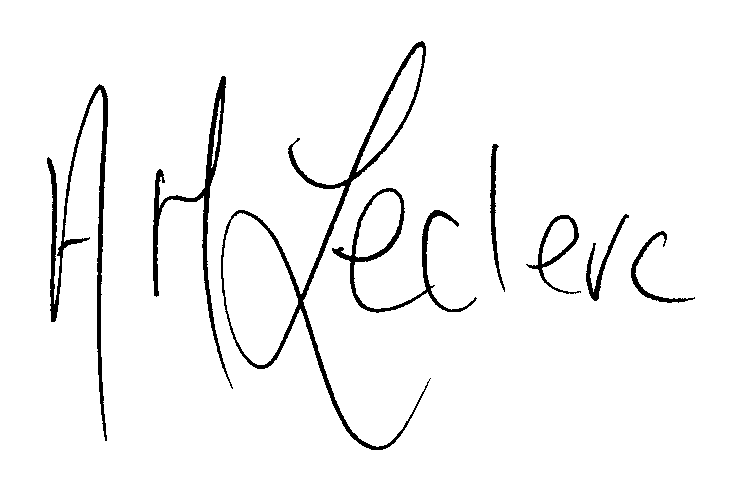 A M Leclerc